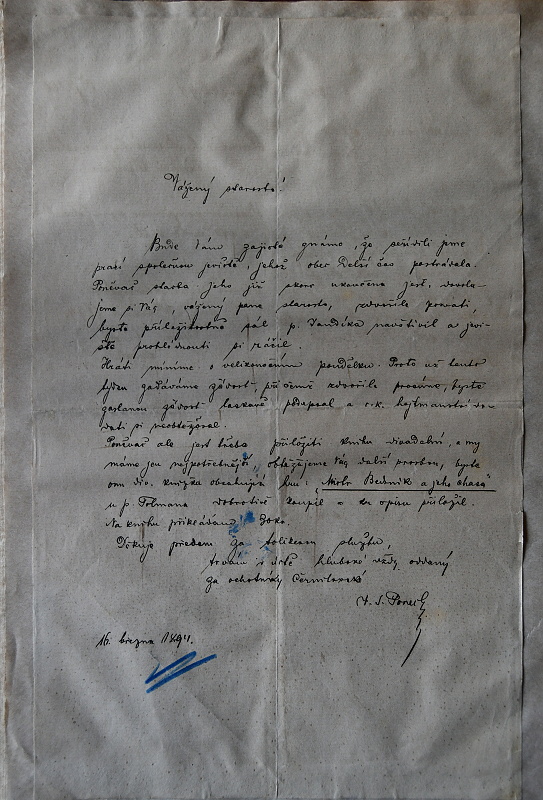 Vážený starosto!
Bude Vám zajisté známo, že zřídili jsme
prací společnou jeviště, jehož obec delší čas postrádala.
Poněvač stavba jeho již skoro ukončena jest, dovolu-
jeme si Vás, vážený pane starosto, zdvořile pozvati,
byste příležitostně sál p. Vandíka navštívil a jevi-
ště prohlédnouti si ráčil.
Hráti míníme o velikonočním pondělku. Proto už tento
týden zadáváme žádost, při čemž zdvořile prosíme, byste
zaslanou žádost laskavě podepsal a c.k. hejtmanství do-
dati si neobtěžoval.
Poněvač ale jest třeba přiložiti knihu divadelní, a my
máme jen nejpotřebnější, obtěžujeme Vás další prosbou, byste
onu div. knížku obsahující hru: „Mistr Bedník a jeho chasa"
u p. Tolmana dobrotivě koupil a ku spisu přiložil.
Na knihu přikládám 30kr.
Děkuje předem za tolikerou službu,
trvám v úctě hluboké vždy oddaný
za ochotníky Černilovské
16. března 1894.